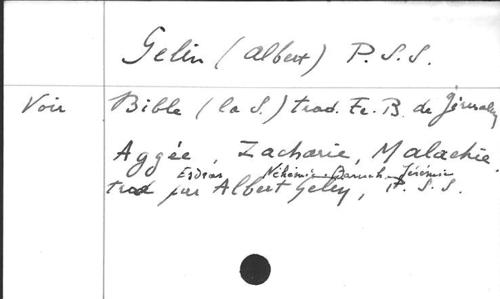 Gelin (Albert) P.S.S.
Voir Bible (la S.) trad. Ec. B. de Jérusalem
Aggée, Zacharie, Malachie.
Esdras Néhémie. Baruch. Jérémie
trad par Albert Gelin, P.S.S.